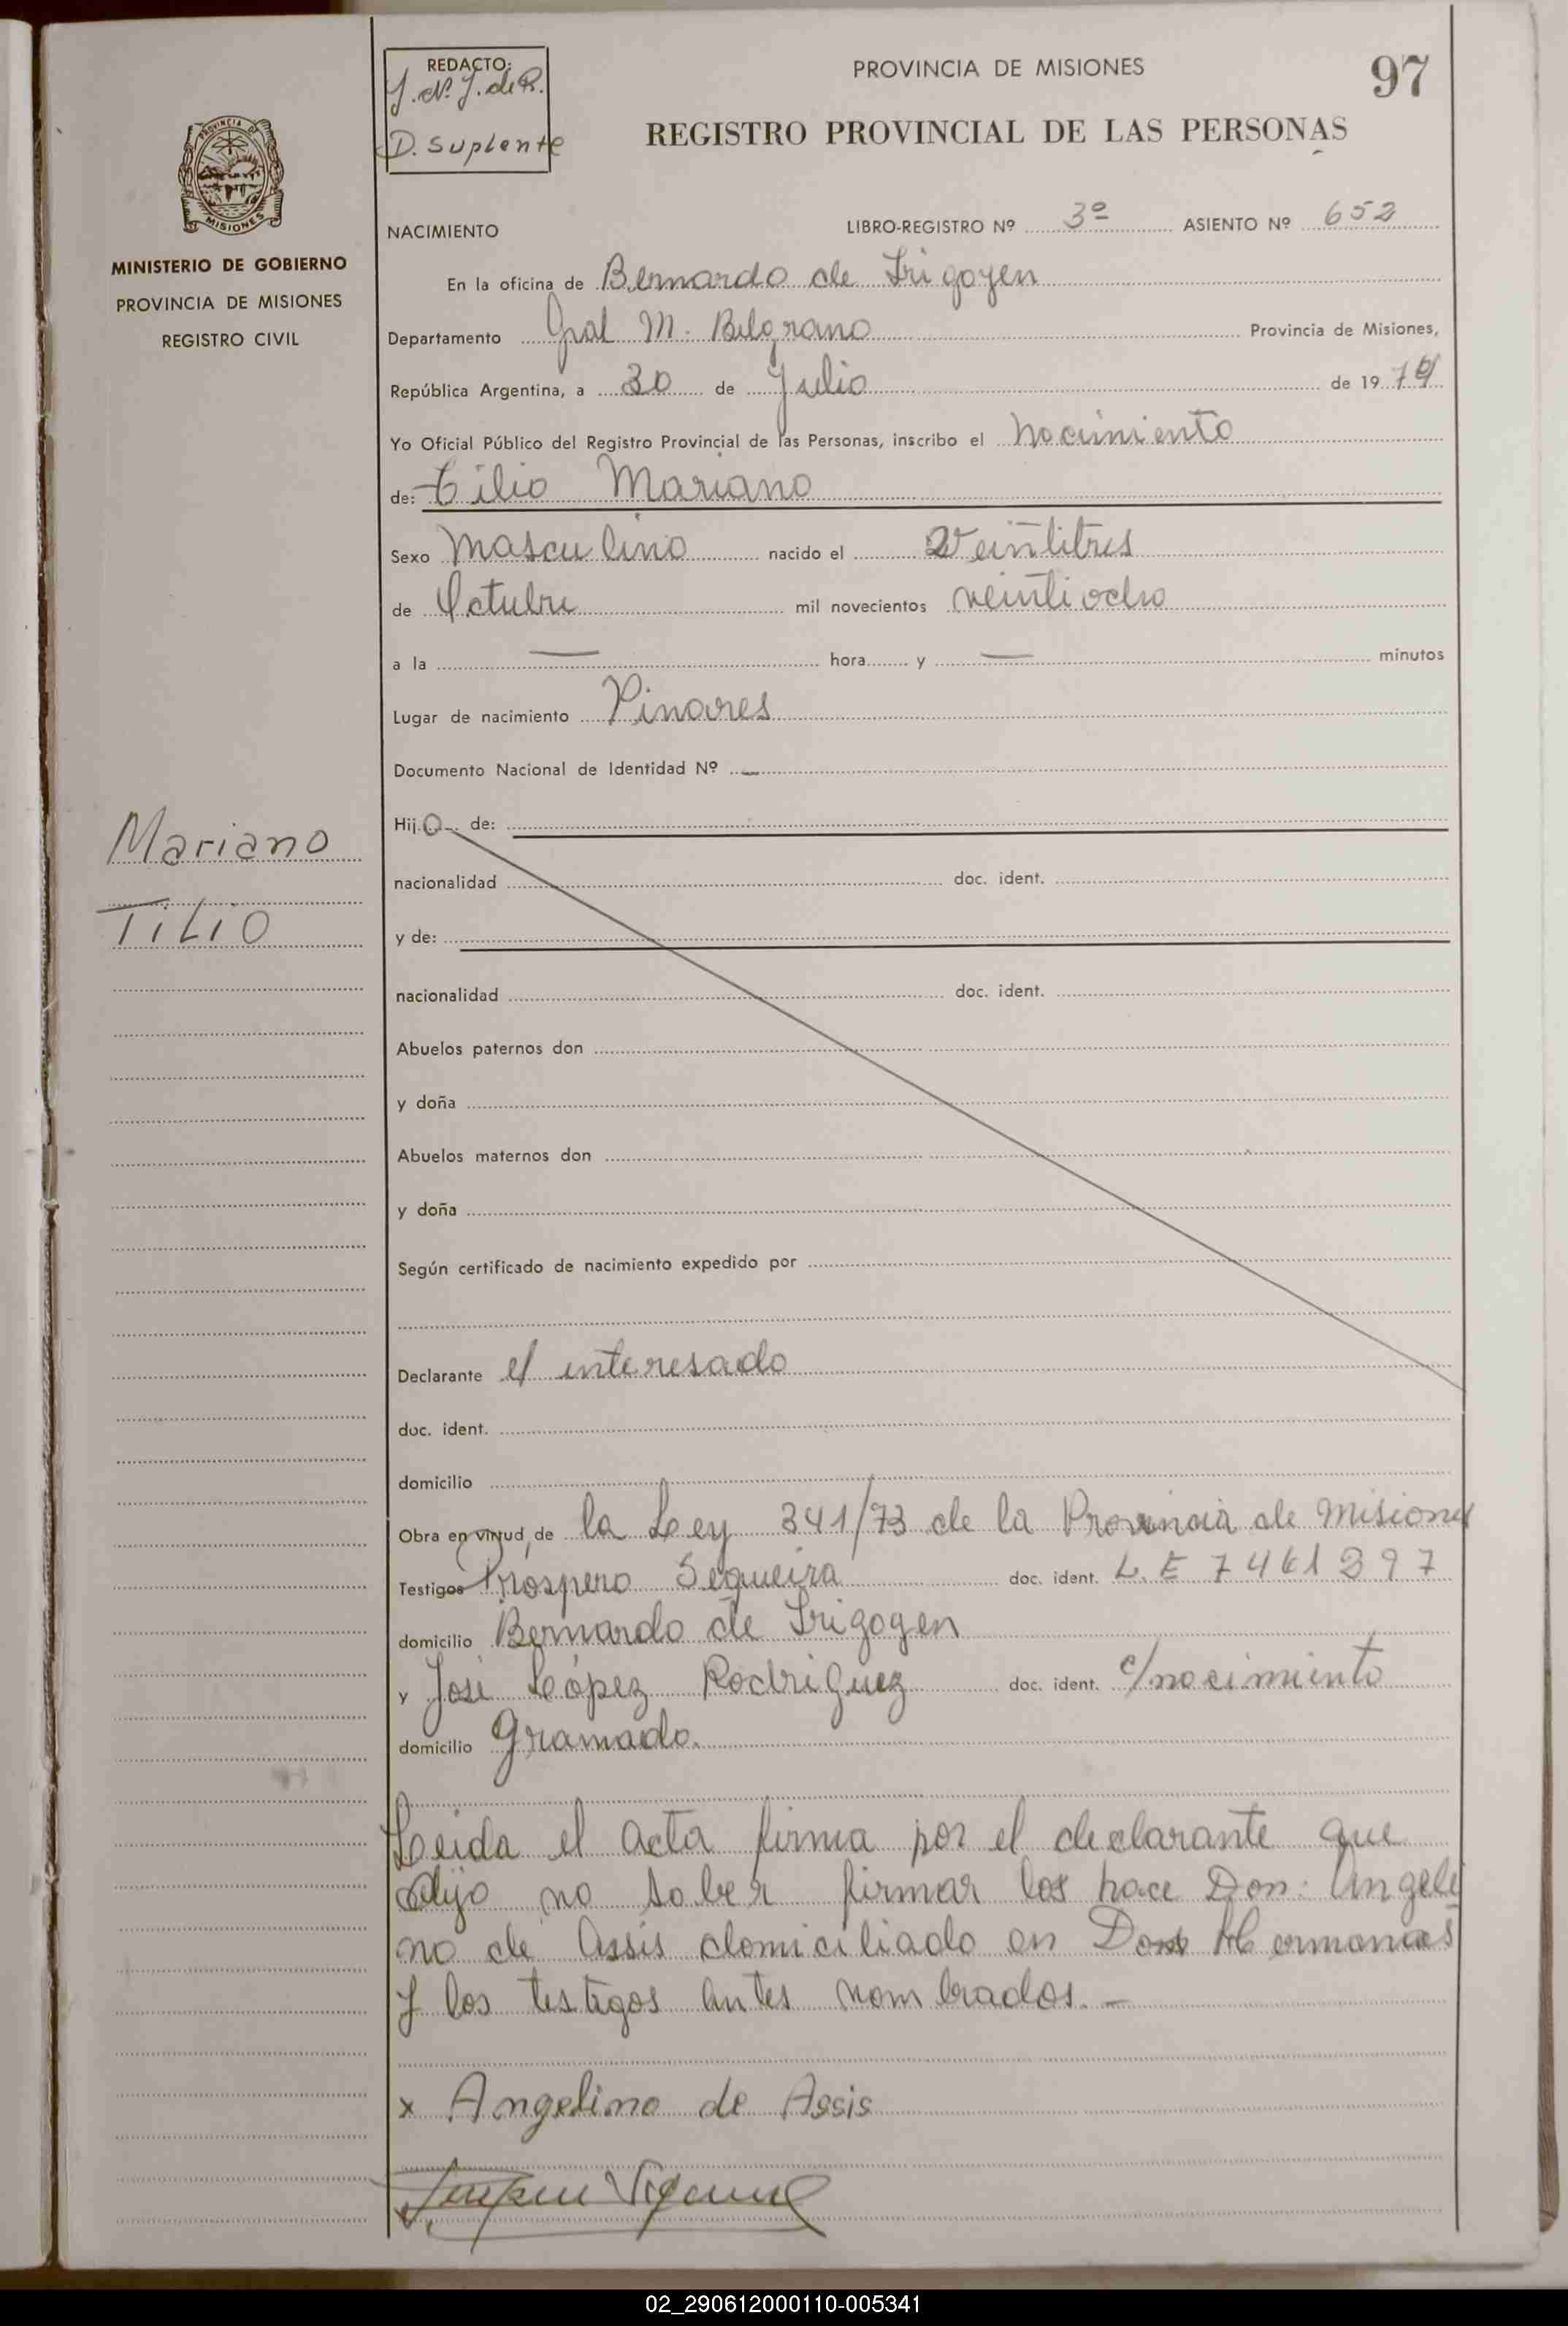 REDACTO:
J. N. J. de R.
D. Suplente
PROVINCIA DE MISIONES
97
REGISTRO PROVINCIAL DE LAS PERSONAS
PROVINCIA DE
MISIONES
MINISTERIO DE GOBIERNO
PROVINCIA DE MISIONES
REGISTRO CIVIL
NACIMIENTO LIBRO-REGISTRO Nº 3º ASIENTO Nº 652
En la oficina de Bernardo de Irigoyen
Departamento Gral M. Belgrano Provincia de Misiones,
República Argentina, a 30 de Julio de 19
Yo Oficial Público del Registro Provincial de las Personas, inscribo el nacimiento
de: Tilio Mariano
Sexo Masculino nacido el Veintitres
de Octubre mil novecientos veintiocho
a la — hora y — minutos
Lugar de nacimiento Pinares
Documento Nacional de Identidad Nº —
Mariano
Tilio
Hijo de:
nacionalidad doc. ident.
y de:
nacionalidad doc. ident.
Abuelos paternos don
y doña
Abuelos maternos don
y doña
Según certificado de nacimiento expedido por
Declarante el interesado
doc. ident.
domicilio
Obra en virtud de la Ley 341/73 de la Provincia de Misiones
Testigos Próspero Sequeira doc. ident. L.E 7461297
domicilio Bernardo de Irigoyen
y José López Rodriguez doc. ident. c/nacimiento
domicilio Gramado.
Leida el acta firma por el declarante que
dijo no saber firmar los hace Don: Angeli
no de Assis domiciliado en Dos Hermanas
y los testigos antes nombrados. —
x Angelino de Assis
02_290612000110-005341